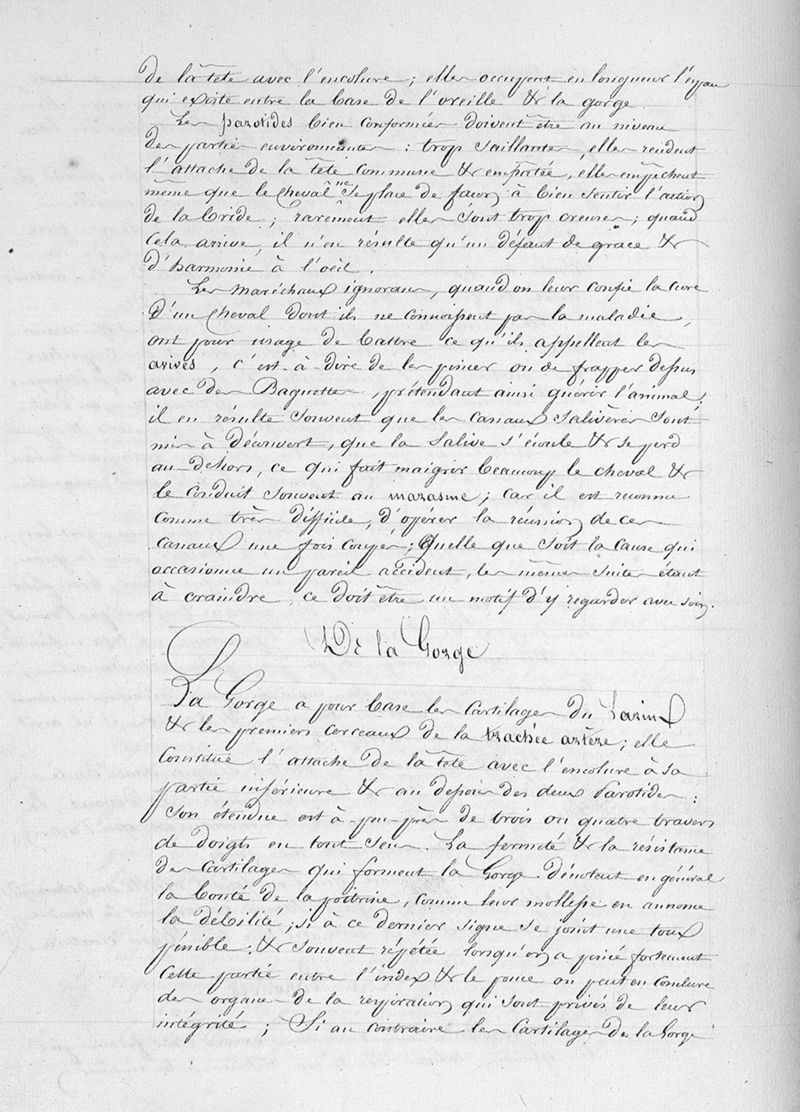 de la tête avec l'encolure; elles occupent en longueur l'espace
qui existe entre la base de l'oreille & la gorge.
Les parotides bien conformées doivent être au niveau
des parties environnantes : trop saillantes, elles rendent
l'attache de la tête commune & empâtée, elles empêchent
même que le cheval ne se place de façon à bien sentir l'action
de la bride; rarement elles sont trop creuses; quand
cela arrive, il n'en résulte qu'un défaut de grace &
d'harmonie à l'oeil.
Les maréchaux ignorans, quand on leur confie la cure
d'un cheval dont ils ne connoissent pas la maladie,
ont pour usage de battre ce qu'ils appellent les
avives, c'est-à-dire de les pincer ou de frapper dessus
avec des Baguettes, prétendant ainsi guérir l'animal;
il en résulte souvent que les canaux salivères sont
mis à découvert, que la salive s'écoule & se perd
au dehors, ce qui fait maigrir beaucoup le cheval &
le conduit souvent au marasme; car il est reconnu
comme très difficile, d'opérer la réunion de ces
canaux une fois coupés; Quelle que soit la cause qui
occasionne un pareil accident, les mêmes suites étant
à craindre, ce doit être un motif d'y regarder avec soin.
De la Gorge
La Gorge a pour base les cartilages du Larinx
& les premiers cerceaux de la trachée artère; elle
constitue l'attache de la tête avec l'encolure à sa
partie inférieure & au dessous des deux Parotides:
son étendue est à-peu-près de trois ou quatre travers
de doigts en tout sens. La fermeté & la résistance
des cartilages qui forment la Gorge dénotent en général
la bonté de la poitrine, comme leur mollesse en annonce
la débilité; si à ce dernier signe se joint une toux
pénible & souvent répétée lorsqu'on a pincé fortement
cette partie entre l'index & le pouce on peut en conclure
des organes de la respiration qui sont privés de leur
intégrité; Si au contraire les cartilages de la Gorge